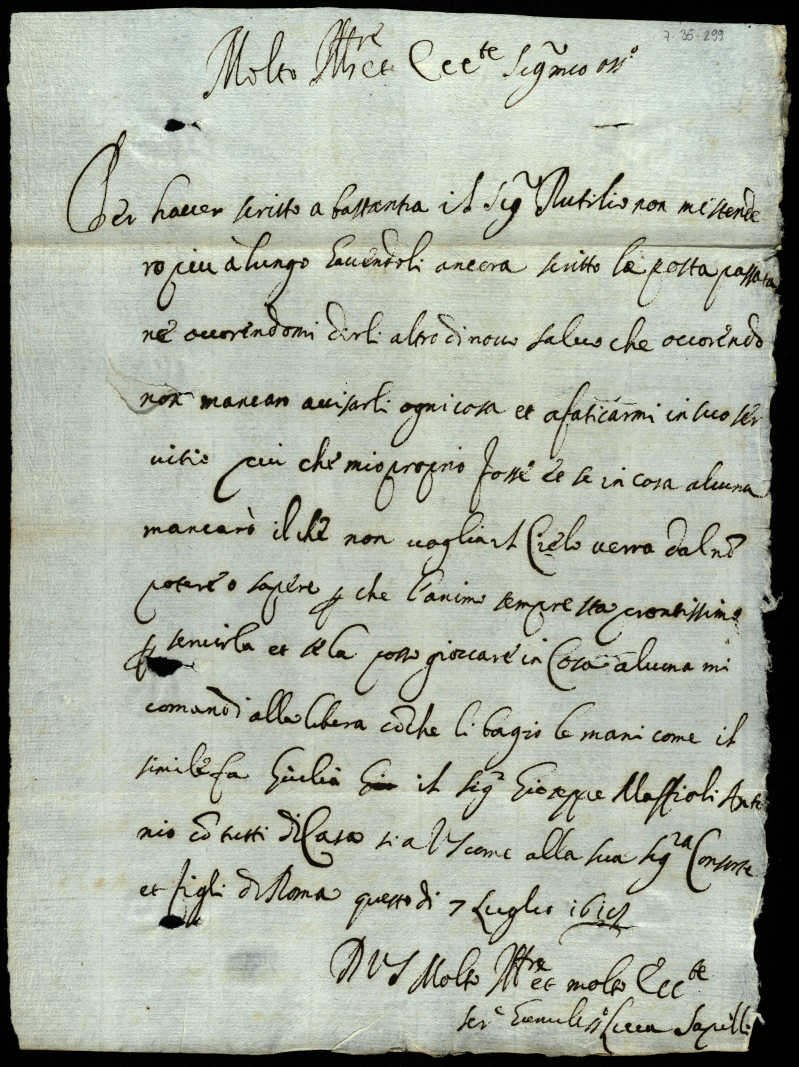 7-36-299
Molto Ill.re et Ecc.te Sig.r mio oss.o
Per haver scritto a bastantia il Sig.r Rutilio non mi stende
ro piu à lungo havendoli ancora scritto la posta passata
ne occorendomi dirli altro di novo salvo che occorendo
non mancaro avisarli ogni cosa et afaticarmi in suo ser
vitio piu che mio proprio fosse e se in cosa alcuna
mancarò il che non voglia il Cielo verra dal nõ
potere o sapere p che l'animo sempre sta prontissimo
p servirla et se la posso gioccare in Cosa alcuna mi
comandi alla libera cõ che li bagio le mani come il
simile fa Giulia il Sig.r Gioseppe Massioli Anto
nio cõ tutti di Casa si a VS come alla sua Sig.ra Consorte
et figli di Roma questo di 7 Luglio
D VS Molto Ill.re et molto Ecc.te
ser.e